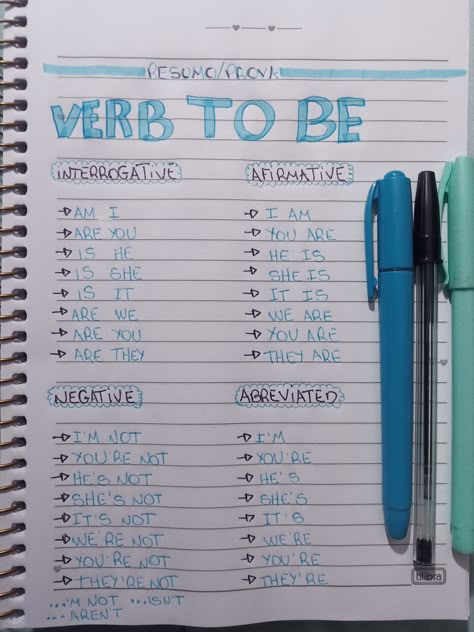 RESUMO/PROVA
VERB TO BE
INTERROGATIVE
AM I
ARE YOU
IS HE
IS SHE
IS IT
ARE WE
ARE YOU
ARE THEY
AFIRMATIVE
I AM
YOU ARE
HE IS
SHE IS
IT IS
WE ARE
YOU ARE
THEY ARE
NEGATIVE
I'M NOT
YOU'RE NOT
HE'S NOT
SHE'S NOT
IT'S NOT
WE'RE NOT
YOU'RE NOT
THEY'RE NOT
...'M NOT ...ISN'T
... AREN'T
ABREVIATED
I'M
YOU'RE
HE'S
SHE'S
IT'S
WE'RE
YOU'RE
THEY'RE
tilibra